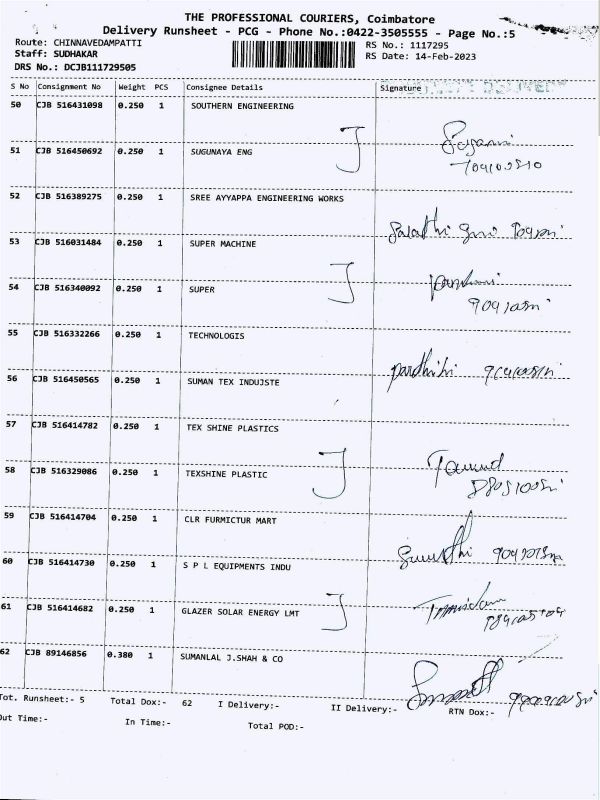 THE PROFESSIONAL COURIERS, Coimbatore
Delivery Runsheet - PCG - Phone No.:0422-3505555 - Page No.:5
Route: CHINNAVEDAMPATTI RS No.: 1117295
Staff: SUDHAKAR RS Date: 14-Feb-2023
DRS No.: DCJB111729505
S No Consignment No Weight PCS Consignee Details Signature
50 CJB 516431098 0.250 1 SOUTHERN ENGINEERING
51 CJB 516450692 0.250 1 SUGUNAYA ENG
52 CJB 516389275 0.250 1 SREE AYYAPPA ENGINEERING WORKS
53 CJB 516031484 0.250 1 SUPER MACHINE
54 CJB 516340092 0.250 1 SUPER
55 CJB 516332266 0.250 1 TECHNOLOGIS
56 CJB 516450565 0.250 1 SUMAN TEX INDUJSTE
57 CJB 516414782 0.250 1 TEX SHINE PLASTICS
58 CJB 516329086 0.250 1 TEXSHINE PLASTIC
59 CJB 516414704 0.250 1 CLR FURMICTUR MART
60 CJB 516414730 0.250 1 S P L EQUIPMENTS INDU
61 CJB 516414682 0.250 1 GLAZER SOLAR ENERGY LMT
62 CJB 89146856 0.380 1 SUMANLAL J.SHAH & CO
Tot. Runsheet:- 5 Total Dox:- 62 I Delivery:- II Delivery:- RTN Dox:-
Out Time:- In Time:- Total POD:-